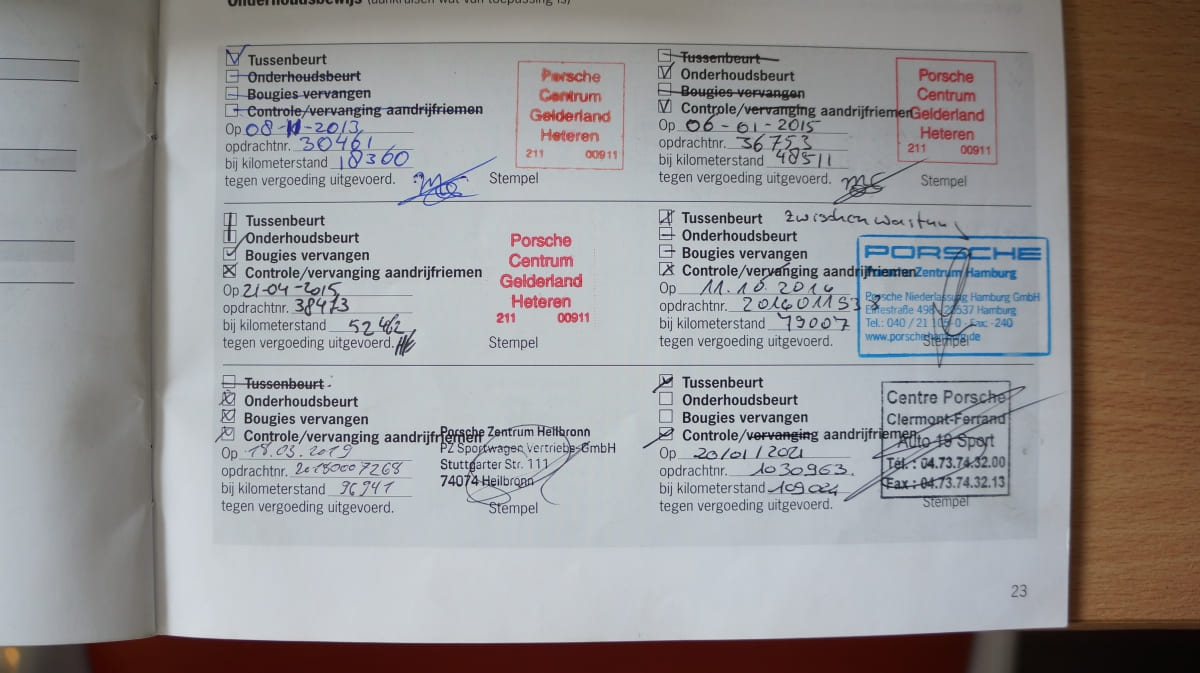 Onderhoudsbewijs (aankruisen wat van toepassing is)
Tussenbeurt
Onderhoudsbeurt
Bougies vervangen
Controle/vervanging aandrijfriemen
Op 08-11-2013
opdrachtnr. 30461
bij kilometerstand 18360
tegen vergoeding uitgevoerd.
Stempel
Porsche
Centrum
Gelderland
Heteren
211 00911
Tussenbeurt
Onderhoudsbeurt
Bougies vervangen
Controle/vervanging aandrijfriemen
Op 06-01-2015
opdrachtnr. 36753
bij kilometerstand 48511
tegen vergoeding uitgevoerd.
Stempel
Porsche
Centrum
Gelderland
Heteren
211 00911
Tussenbeurt
Onderhoudsbeurt
Bougies vervangen
Controle/vervanging aandrijfriemen
Op 21-04-2015
opdrachtnr. 38473
bij kilometerstand 52462
tegen vergoeding uitgevoerd.
Stempel
Porsche
Centrum
Gelderland
Heteren
211 00911
Tussenbeurt Zwischenwartung
Onderhoudsbeurt
Bougies vervangen
Controle/vervanging aandrijfriemen
Op 11.10.2016
opdrachtnr.
bij kilometerstand 79007
tegen vergoeding uitgevoerd.
Stempel
PORSCHE
Zentrum Hamburg
Porsche Niederlassung Hamburg GmbH
20537 Hamburg
Tel.: 040 / 21 105-0 Fax: -240
www.porschehamburg.de
Tussenbeurt
Onderhoudsbeurt
Bougies vervangen
Controle/vervanging aandrijfriemen
Op 18.03.2019
opdrachtnr. 20180007268
bij kilometerstand 96941
tegen vergoeding uitgevoerd.
Stempel
Porsche Zentrum Heilbronn
PZ Sportwagen Vertriebs-GmbH
Stuttgarter Str. 111
74074 Heilbronn
Tussenbeurt
Onderhoudsbeurt
Bougies vervangen
Controle/vervanging aandrijfriemen
Op 20/01/2021
opdrachtnr. 1030963.
bij kilometerstand 109024
tegen vergoeding uitgevoerd.
Stempel
Centre Porsche
Clermont-Ferrand
Auto 19 Sport
Tél. : 04.73.74.32.00
Fax : 04.73.74.32.13
23